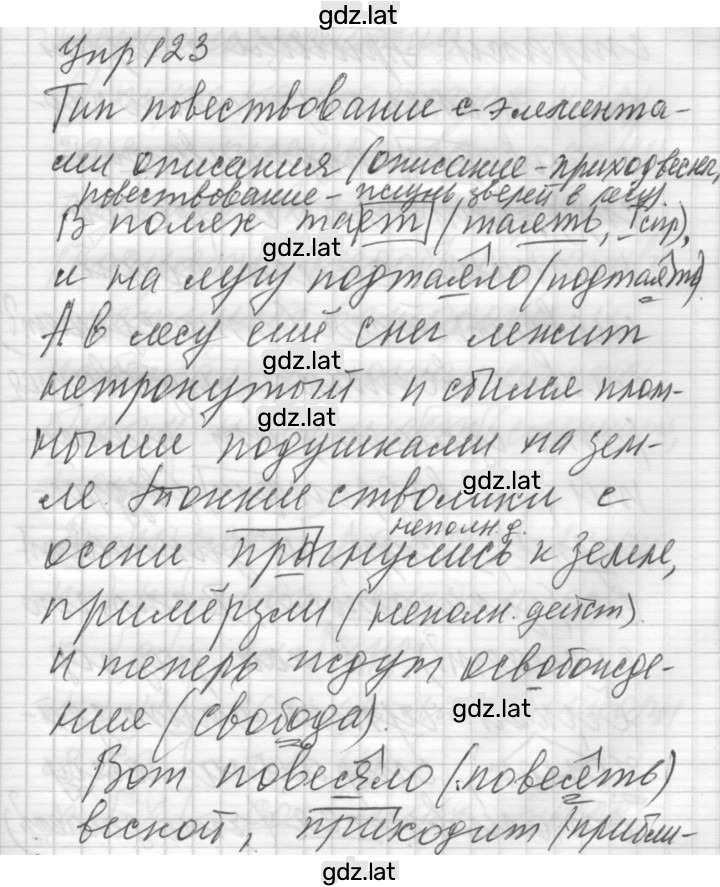 gdz.lat
Упр 123
Тип повествование с элемента-
ми описания (описание - приход весны,
повествование - жизнь зверей в лесу.
В полях тает (таять, I спр),
gdz.lat
и на лугу подтаяло (подтаять).
А в лесу ещё снег лежит
gdz.lat
нетронутый и сбился плот-
gdz.lat
ными подушками на зем-
gdz.lat
ле. Тонкие стволики с
неполн. д.
осени пригнулись к земле,
примёрзли (неполн. дейст).
и теперь ждут освобожде-
ния (свобода).
gdz.lat
Вот повеяло (повеять)
весной, приходит (прибли-
gdz.lat